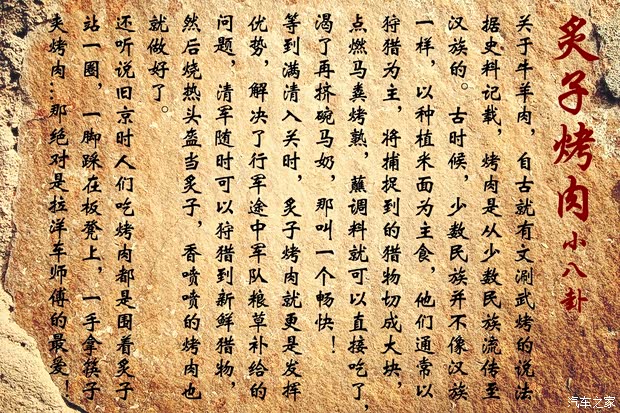 炙子烤肉 小八卦
关于牛羊肉，自古就有文涮武烤的说法
据史料记载，烤肉是从少数民族流传至
汉族的。古时候，少数民族并不像汉族
一样，以种植米面为主食，他们通常以
狩猎为主，将捕捉到的猎物切成大块，
点燃马粪烤熟，蘸调料就可以直接吃了，
渴了再挤碗马奶，那叫一个畅快！
等到满清入关时，炙子烤肉就更是发挥
优势，解决了行军途中军队粮草补给的
问题，清军随时可以狩猎到新鲜猎物，
然后烧热头盔当炙子，香喷喷的烤肉也
就做好了。
还听说旧京时人们吃烤肉都是围着炙子
站一圈，一脚踩在板凳上，一手拿筷子
夹烤肉…那绝对是拉洋车师傅的最爱！
汽车之家